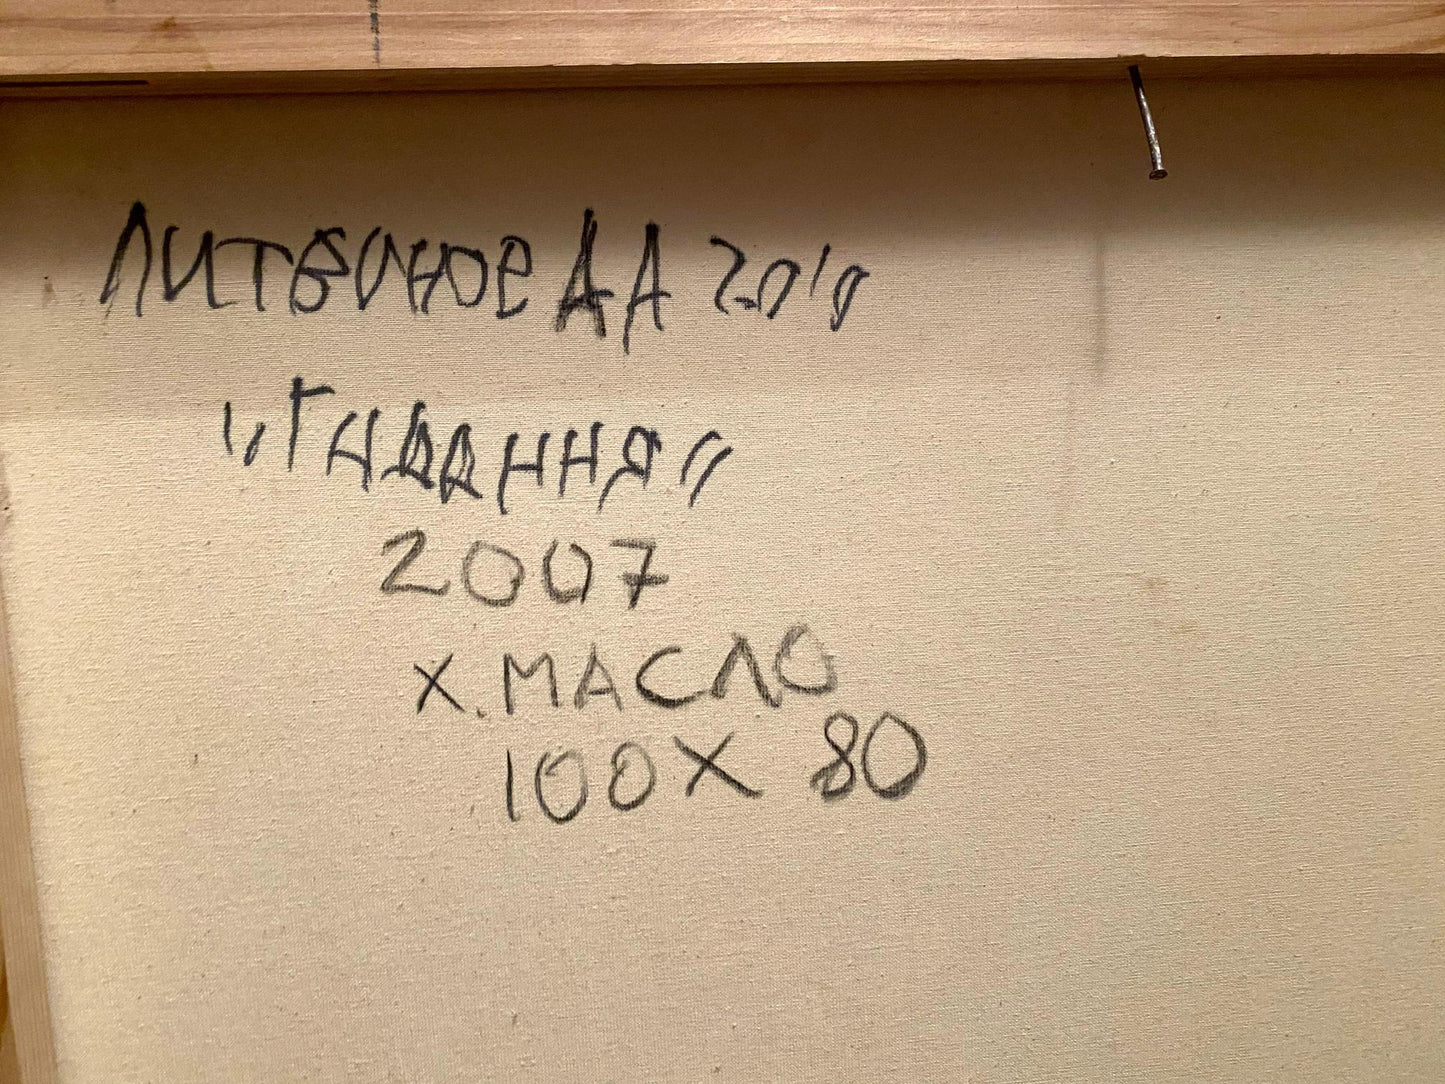 ЛИТВИНОВ
„ГАДАННЯ”
2007
Х. МАСЛО
100 X 80